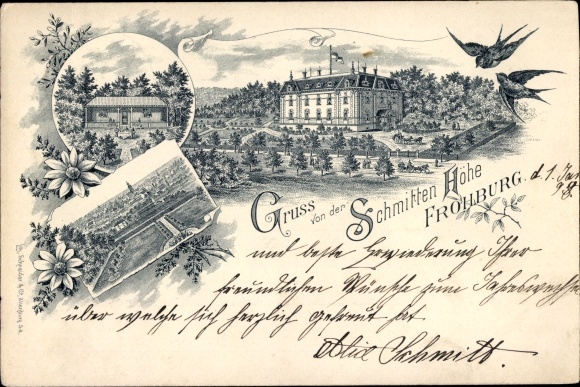 Gruss von der Schmitten Höhe
FROHBURG.
d. 1. Jan
98.
und beste Erwiederung Ihrer
freundlichen Wünsche zum Jahreswechse
über welche sich herzlich gefreut hat
Schmitt.
Schneider & Co. Altenburg S.A.